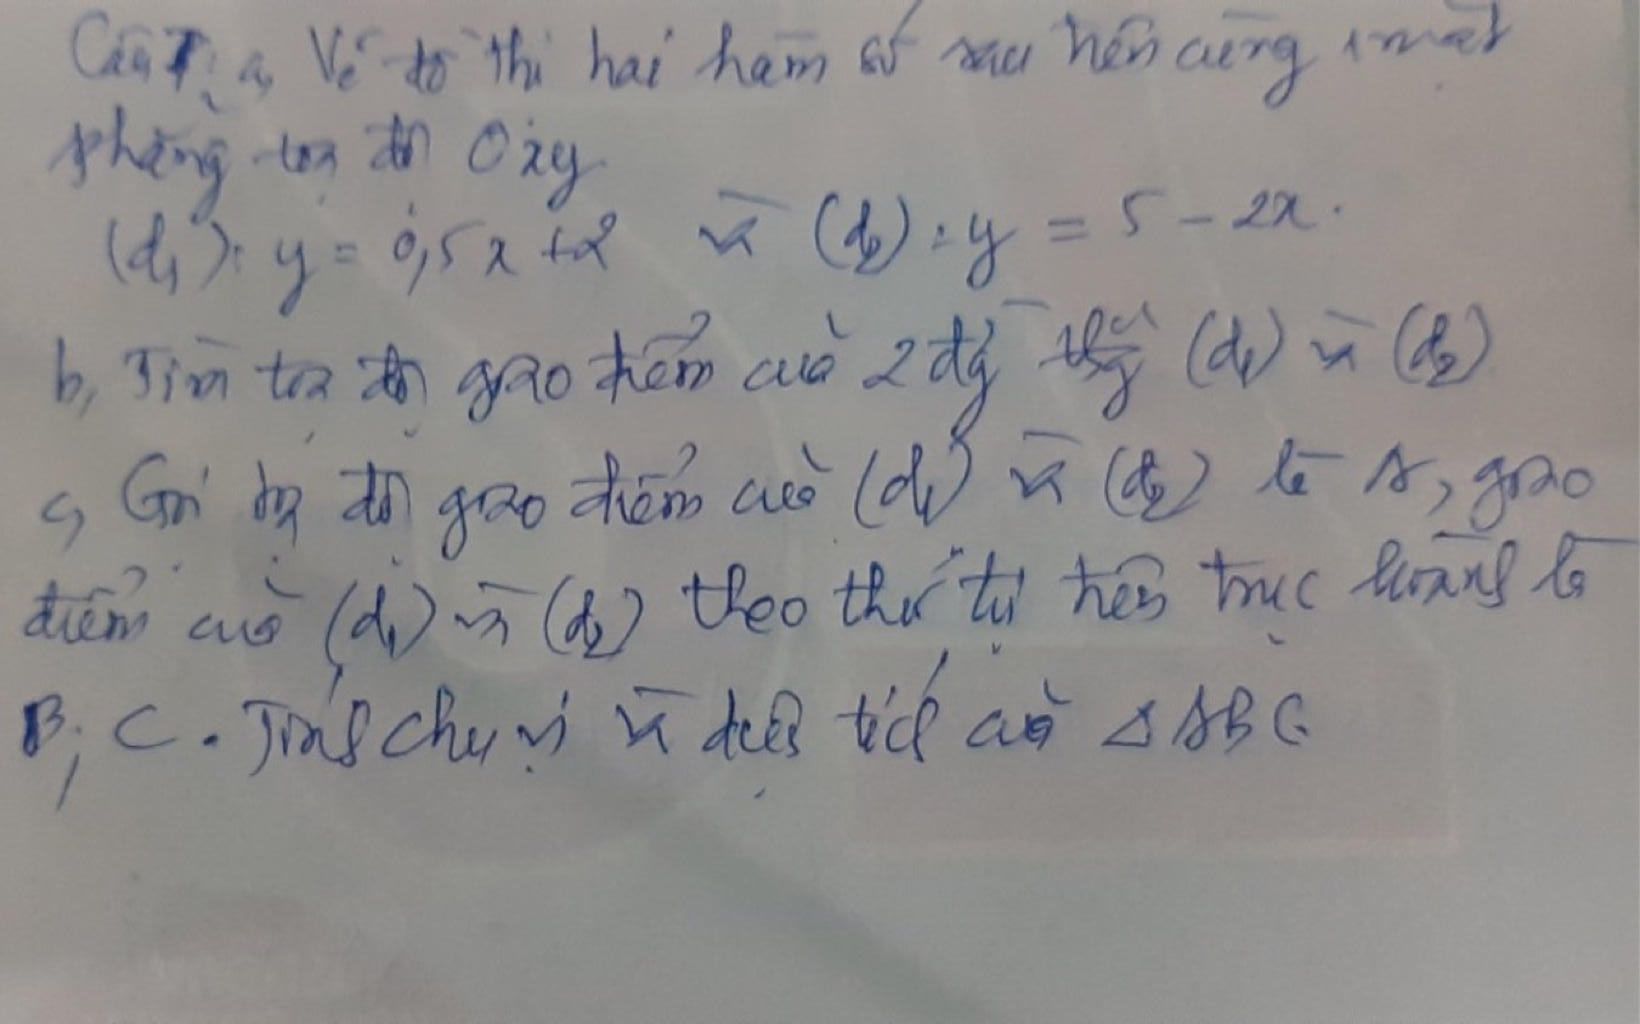 Câu 1: a, Vẽ đồ thị hai hàm số sau trên cùng 1 mặt
phẳng tọa độ Oxy
(d₁): y = 0,5x + 2 và (d₂): y = 5 - 2x.
b, Tìm tọa độ giao điểm của 2 đg thg (d₁) và (d₂)
c, Gọi tọa độ giao điểm của (d₁) và (d₂) là A, giao
điểm của (d₁) và (d₂) theo thứ tự trên trục hoành là
B, C. Tính chu vi và diện tích của △ABC